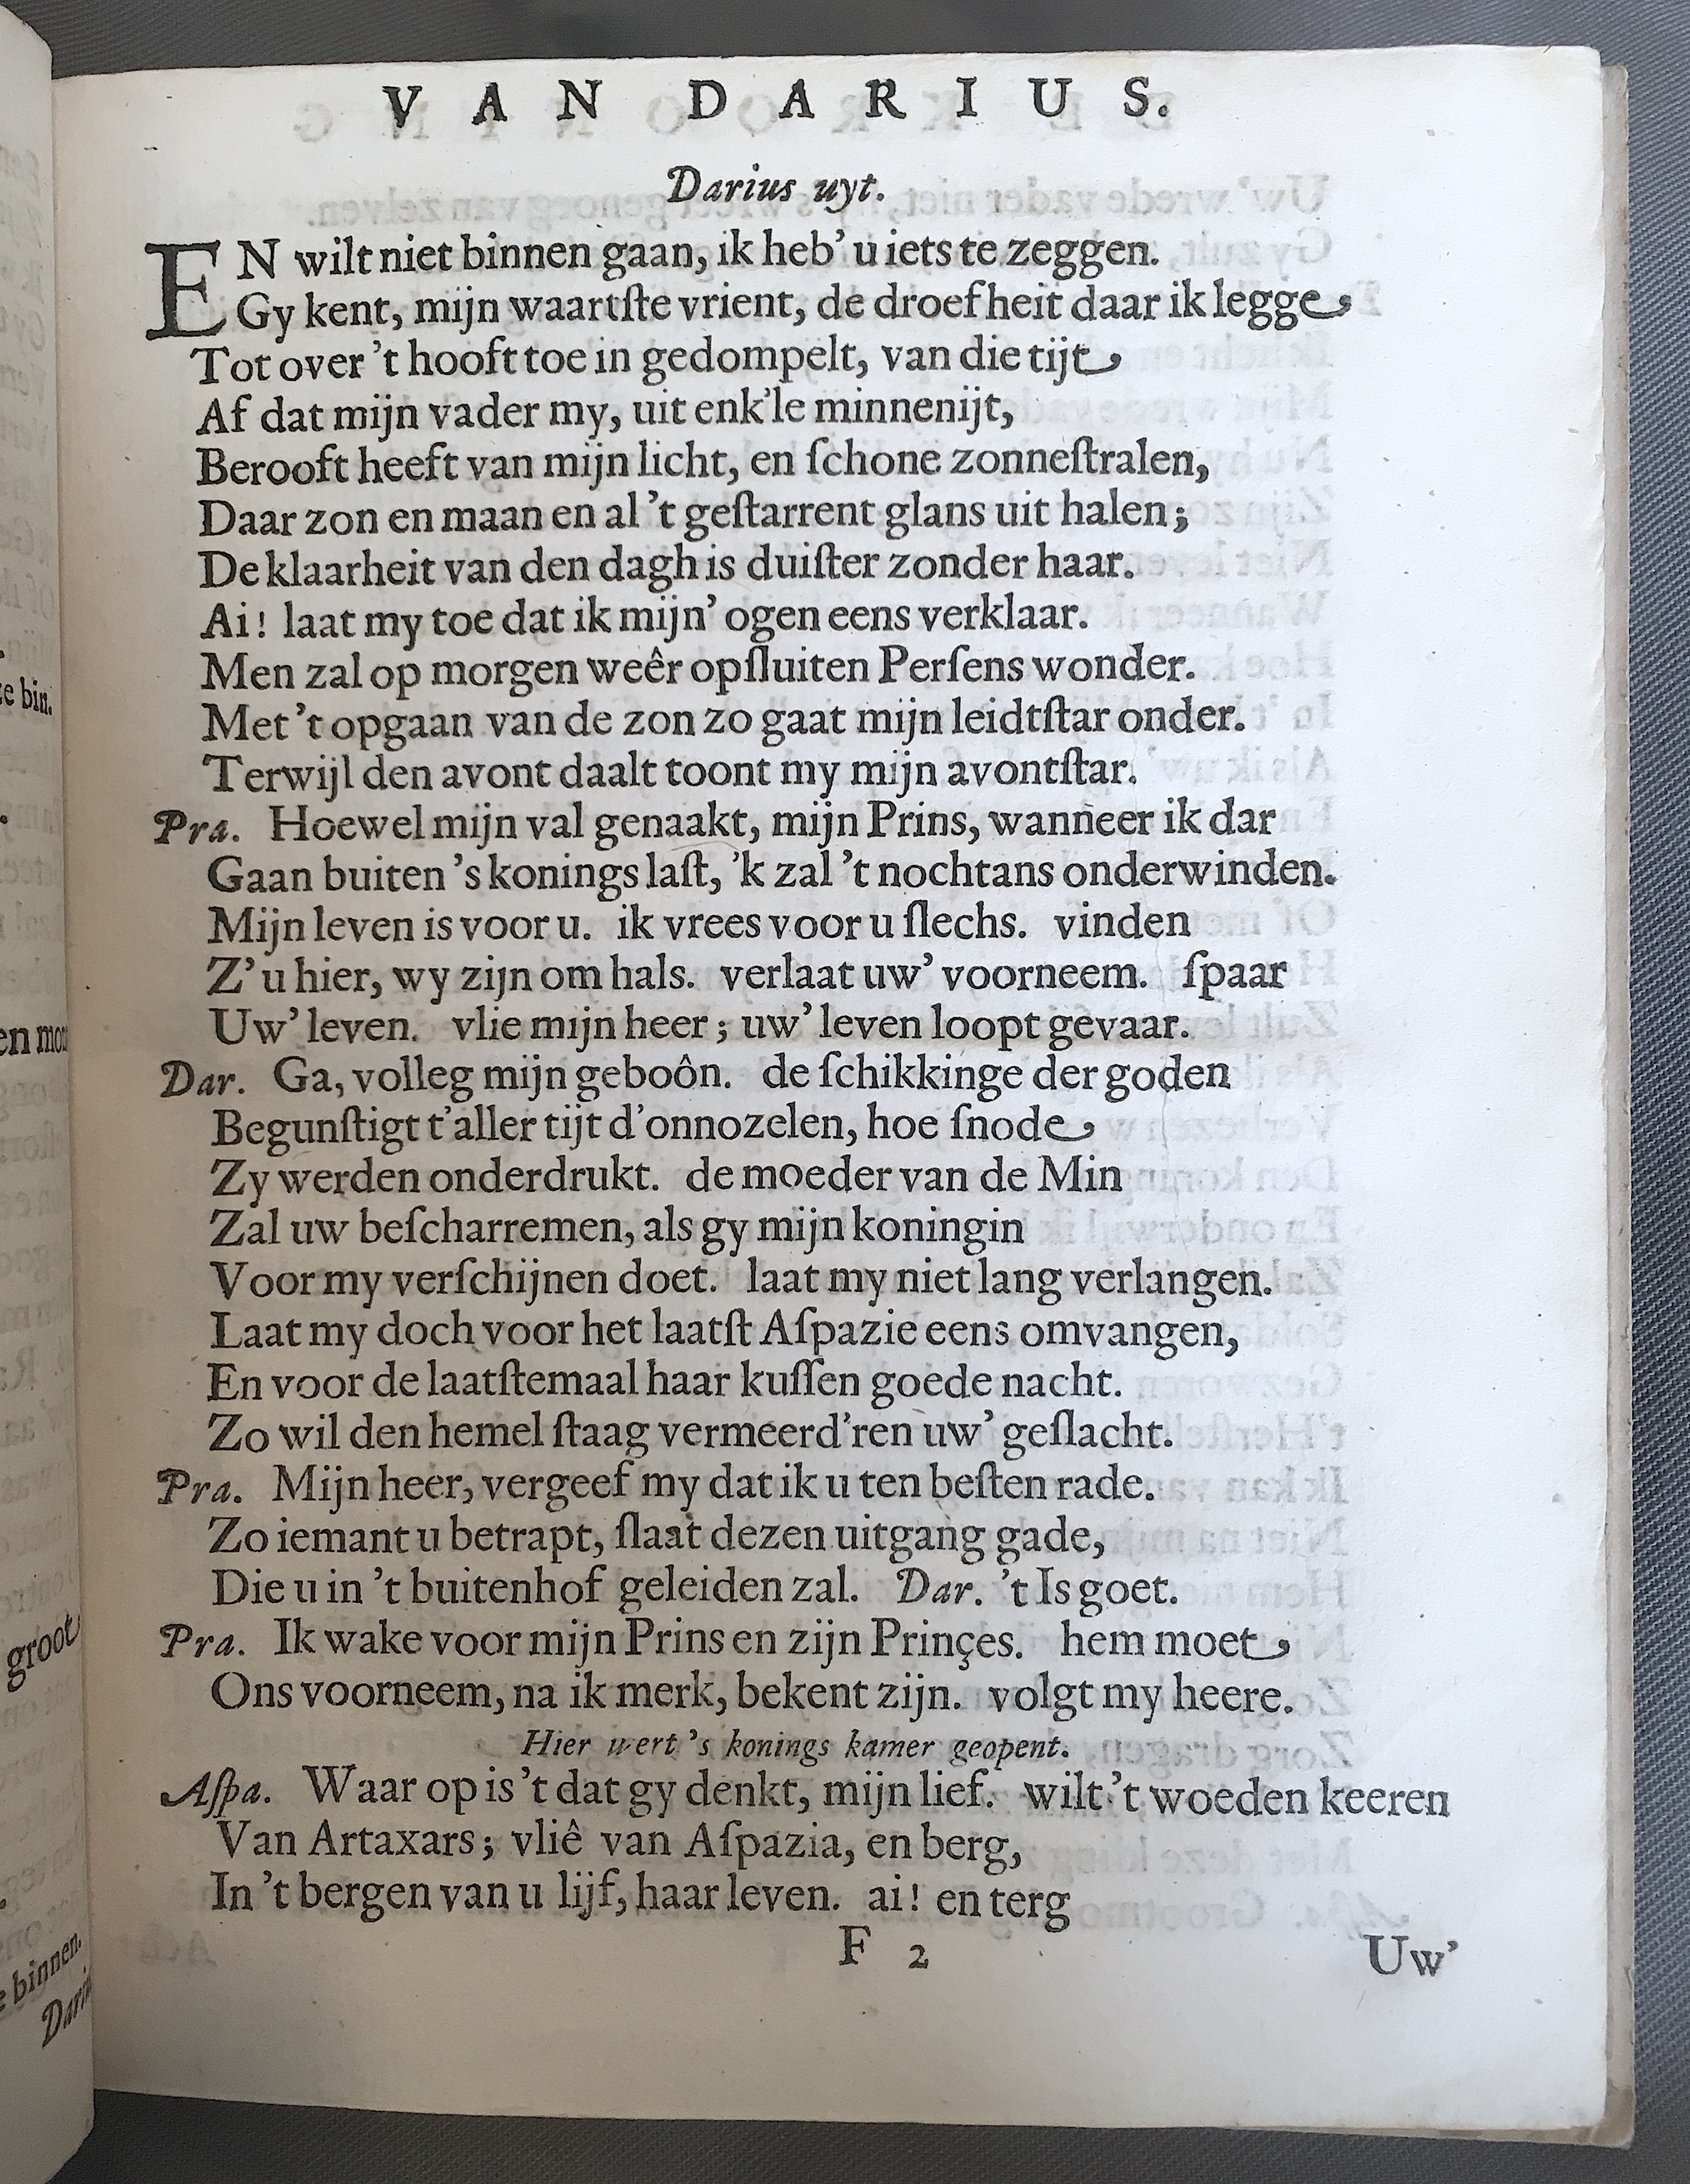 VAN DARIUS.
Darius uyt.
EN wilt niet binnen gaan, ik heb' u iets te zeggen.
Gy kent, mijn waartſte vrient, de droefheit daar ik legge
Tot over 't hooft toe in gedompelt, van die tijt
Af dat mijn vader my, uit enk'le minnenijt,
Berooft heeft van mijn licht, en ſchone zonneſtralen,
Daar zon en maan en al 't geſtarrent glans uit halen;
De klaarheit van den dagh is duiſter zonder haar.
Ai! laat my toe dat ik mijn' ogen eens verklaar.
Men zal op morgen weêr opſluiten Perſens wonder.
Met 't opgaan van de zon zo gaat mijn leidtſtar onder.
Terwijl den avont daalt toont my mijn avontſtar.
Pra. Hoewel mijn val genaakt, mijn Prins, wanneer ik dar
Gaan buiten 's konings laſt, 'k zal 't nochtans onderwinden.
Mijn leven is voor u. ik vrees voor u ſlechs. vinden
Z' u hier, wy zijn om hals. verlaat uw' voorneem. ſpaar
Uw' leven. vlie mijn heer; uw' leven loopt gevaar.
Dar. Ga, volleg mijn geboôn. de ſchikkinge der goden
Begunſtigt t'aller tijt d'onnozelen, hoe ſnode
Zy werden onderdrukt. de moeder van de Min
Zal uw beſcharremen, als gy mijn koningin
Voor my verſchijnen doet. laat my niet lang verlangen.
Laat my doch voor het laatſt Aſpazie eens omvangen,
En voor de laatſtemaal haar kuſſen goede nacht.
Zo wil den hemel ſtaag vermeerd'ren uw' geſlacht.
Pra. Mijn heer, vergeef my dat ik u ten beſten rade.
Zo iemant u betrapt, ſlaat dezen uitgang gade,
Die u in 't buitenhof geleiden zal. Dar. 't Is goet.
Pra. Ik wake voor mijn Prins en zijn Prinçes. hem moet
Ons voorneem, na ik merk, bekent zijn. volgt my heere.
Hier wert 's konings kamer geopent.
Aſpa. Waar op is 't dat gy denkt, mijn lief. wilt 't woeden keeren
Van Artaxars; vliê van Aſpazia, en berg,
In 't bergen van u lijf, haar leven. ai! en terg
F 2
Uw'
e bin.
groot
e binnen.